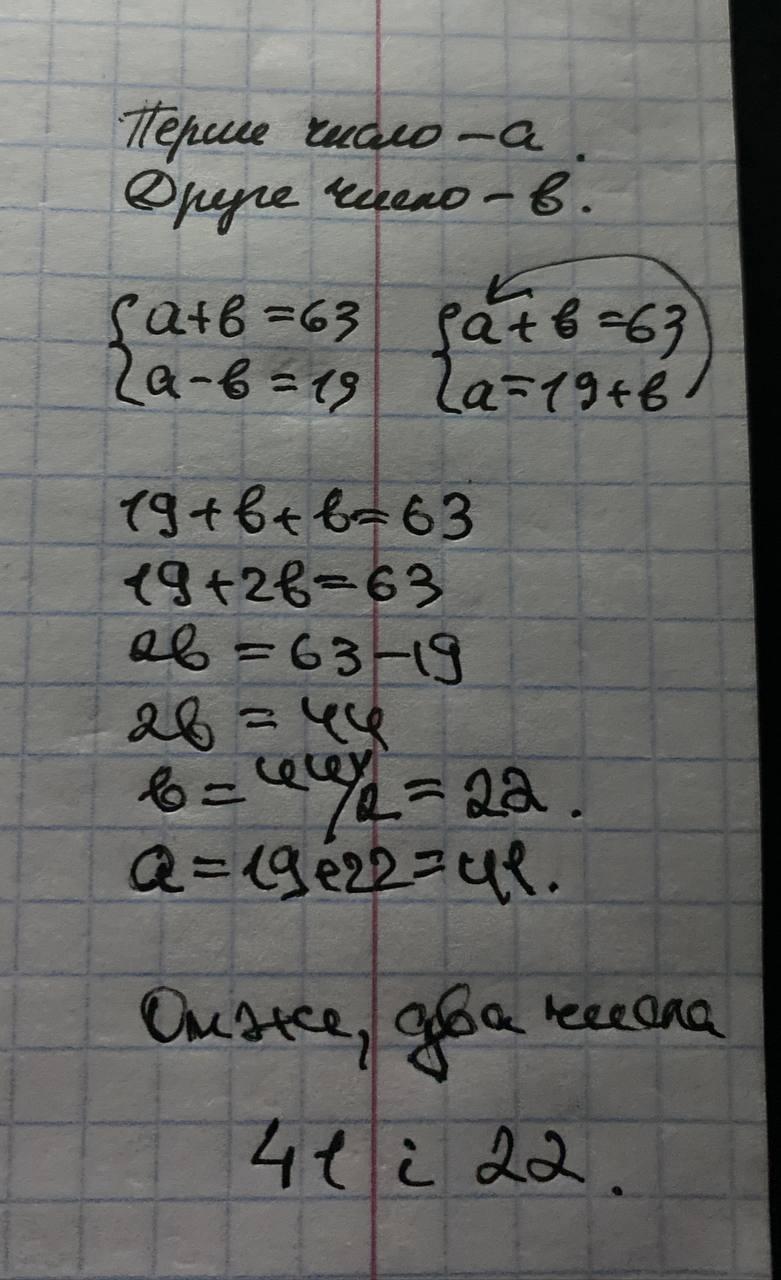 Перше число – а.
Друге число – в.
{ а+в = 63 { а + в = 63
{ а – в = 19 { а = 19 + в
19 + в + в = 63
19 + 2в = 63
2в = 63 – 19
2в = 44
в = 44/2 = 22.
а = 19+22 = 41.
Отже, два числа
41 і 22.